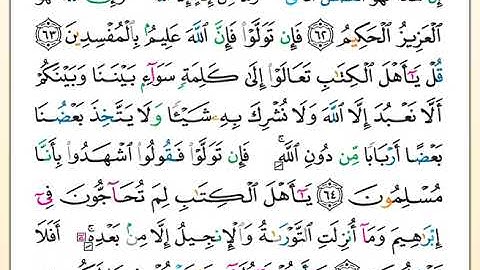 ٱلْعَزِيزُ ٱلْحَكِيمُ ٦٢ فَإِن تَوَلَّوْا۟ فَإِنَّ ٱللَّهَ عَلِيمٌۢ بِٱلْمُفْسِدِينَ ٦٣
قُلْ يَـٰٓأَهْلَ ٱلْكِتَـٰبِ تَعَالَوْا۟ إِلَىٰ كَلِمَةٍ سَوَآءٍۭ بَيْنَنَا وَبَيْنَكُمْ
أَلَّا نَعْبُدَ إِلَّا ٱللَّهَ وَلَا نُشْرِكَ بِهِۦ شَيْـًٔا وَلَا يَتَّخِذَ بَعْضُنَا
بَعْضًا أَرْبَابًا مِّن دُونِ ٱللَّهِ ۚ فَإِن تَوَلَّوْا۟ فَقُولُوا۟ ٱشْهَدُوا۟ بِأَنَّا
مُسْلِمُونَ ٦٤ يَـٰٓأَهْلَ ٱلْكِتَـٰبِ لِمَ تُحَآجُّونَ فِىٓ
إِبْرَٰهِيمَ وَمَآ أُنزِلَتِ ٱلتَّوْرَىٰةُ وَٱلْإِنجِيلُ إِلَّا مِنۢ بَعْدِهِۦٓ ۚ أَفَلَا